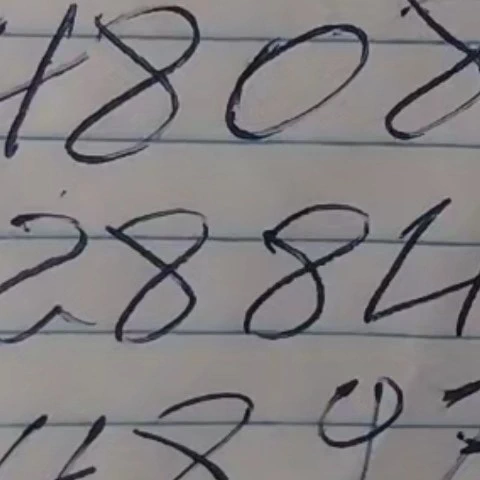 4808
2884
4897